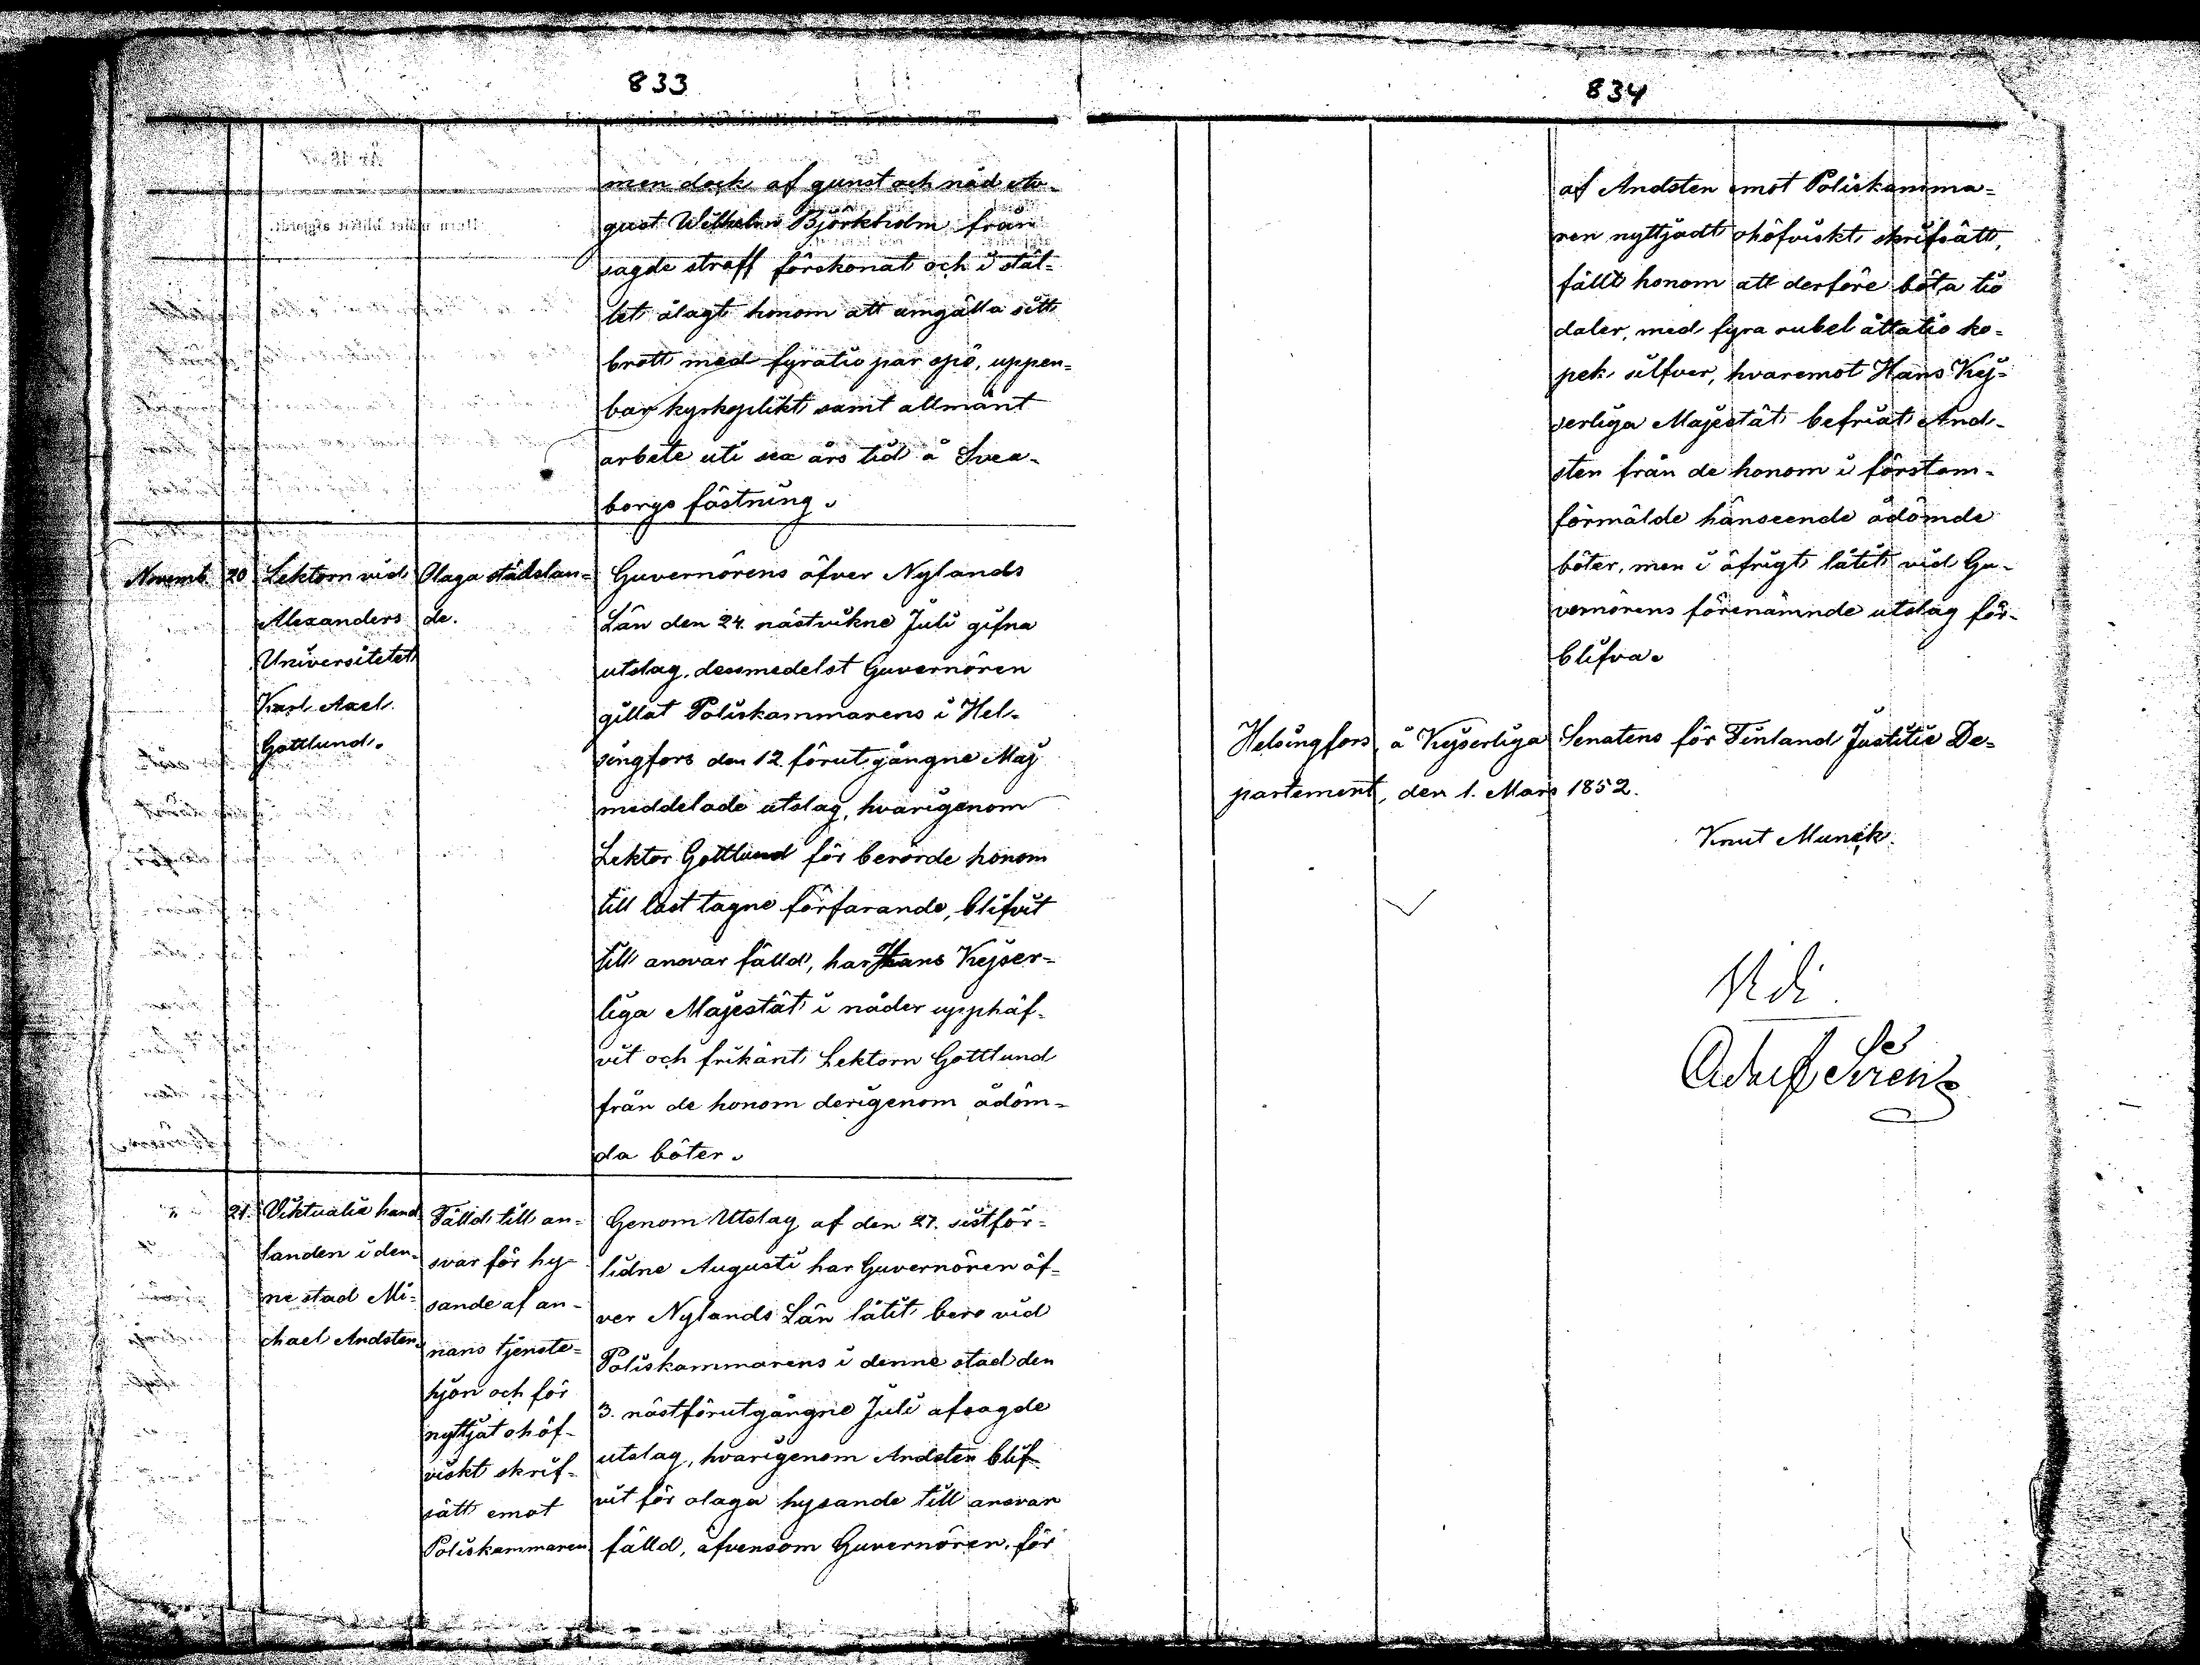 833
men dock af gunst och nåd Au-
gust Wilhelm Björkholm från
sagde straff förskonat och i stäl-
let ålagt honom att umgälla sitt
brott med fyratio par spö, uppen-
bar kyrkoplikt samt allmänt
arbete uti sex års tid å Svea-
borgs fästning.
Novemb. 20
Lektorn vid
Alexanders
Universitetet
Karl Axel
Gottlund.
Olaga städslan-
de.
Guvernörens öfver Nylands
Län den 24. nästvikne Juli gifna
utslag, dessmedelst Guvernören
gillat Poliskammarens i Hel-
singfors den 12 förutgångne Maj
meddelade utslag, hvarigenom
Lektor Gottlund för berörde honom
till last tagne förfarande, blifvit
till ansvar fälld, har Hans Kejser-
liga Majestät i nåder upphäf-
vit och frikänt Lektorn Gottlund
från de honom derigenom ådöm-
da böter.
" 21.
Viktualie hand
landen i den-
ne stad Mi-
chael Andsten
Fälld till an-
svar för hy-
sande af an-
nans tjenste-
hjon och för
nyttjat ohöf-
viskt skrif-
sätt emot
Poliskammaren
Genom Utslag af den 27. sistför-
lidne Augusti har Guvernören öf-
ver Nylands Län låtit bero vid
Poliskammarens i denne stad den
3. nästförutgångne Juli afsagde
utslag, hvarigenom Andsten blif-
vit för olaga hysande till ansvar
fälld, äfvensom Guvernören, för
834
af Andsten emot Poliskamma-
ren nyttjadt ohöfviskt skrifsätt,
fällt honom att derföre böta tio
daler, med fyra rubel åttatio ko-
pek silfver, hvaremot Hans Kej-
serliga Majestät befriat And-
sten från de honom i förstom-
förmälde hänseende ådömde
böter, men i öfrigt låtit vid Gu-
vernörens förenämnde utslag för-
blifva.
Helsingfors, å Kejserliga Senatens för Finland Justitie De-
partement, den 1. Mars 1852.
Knut Munck.
Vidi
Adolf Sirén